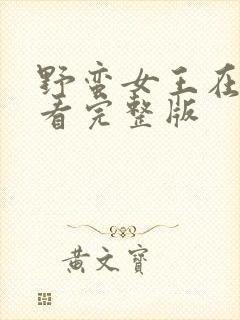 野蛮女王在
看完整版
黄文寶